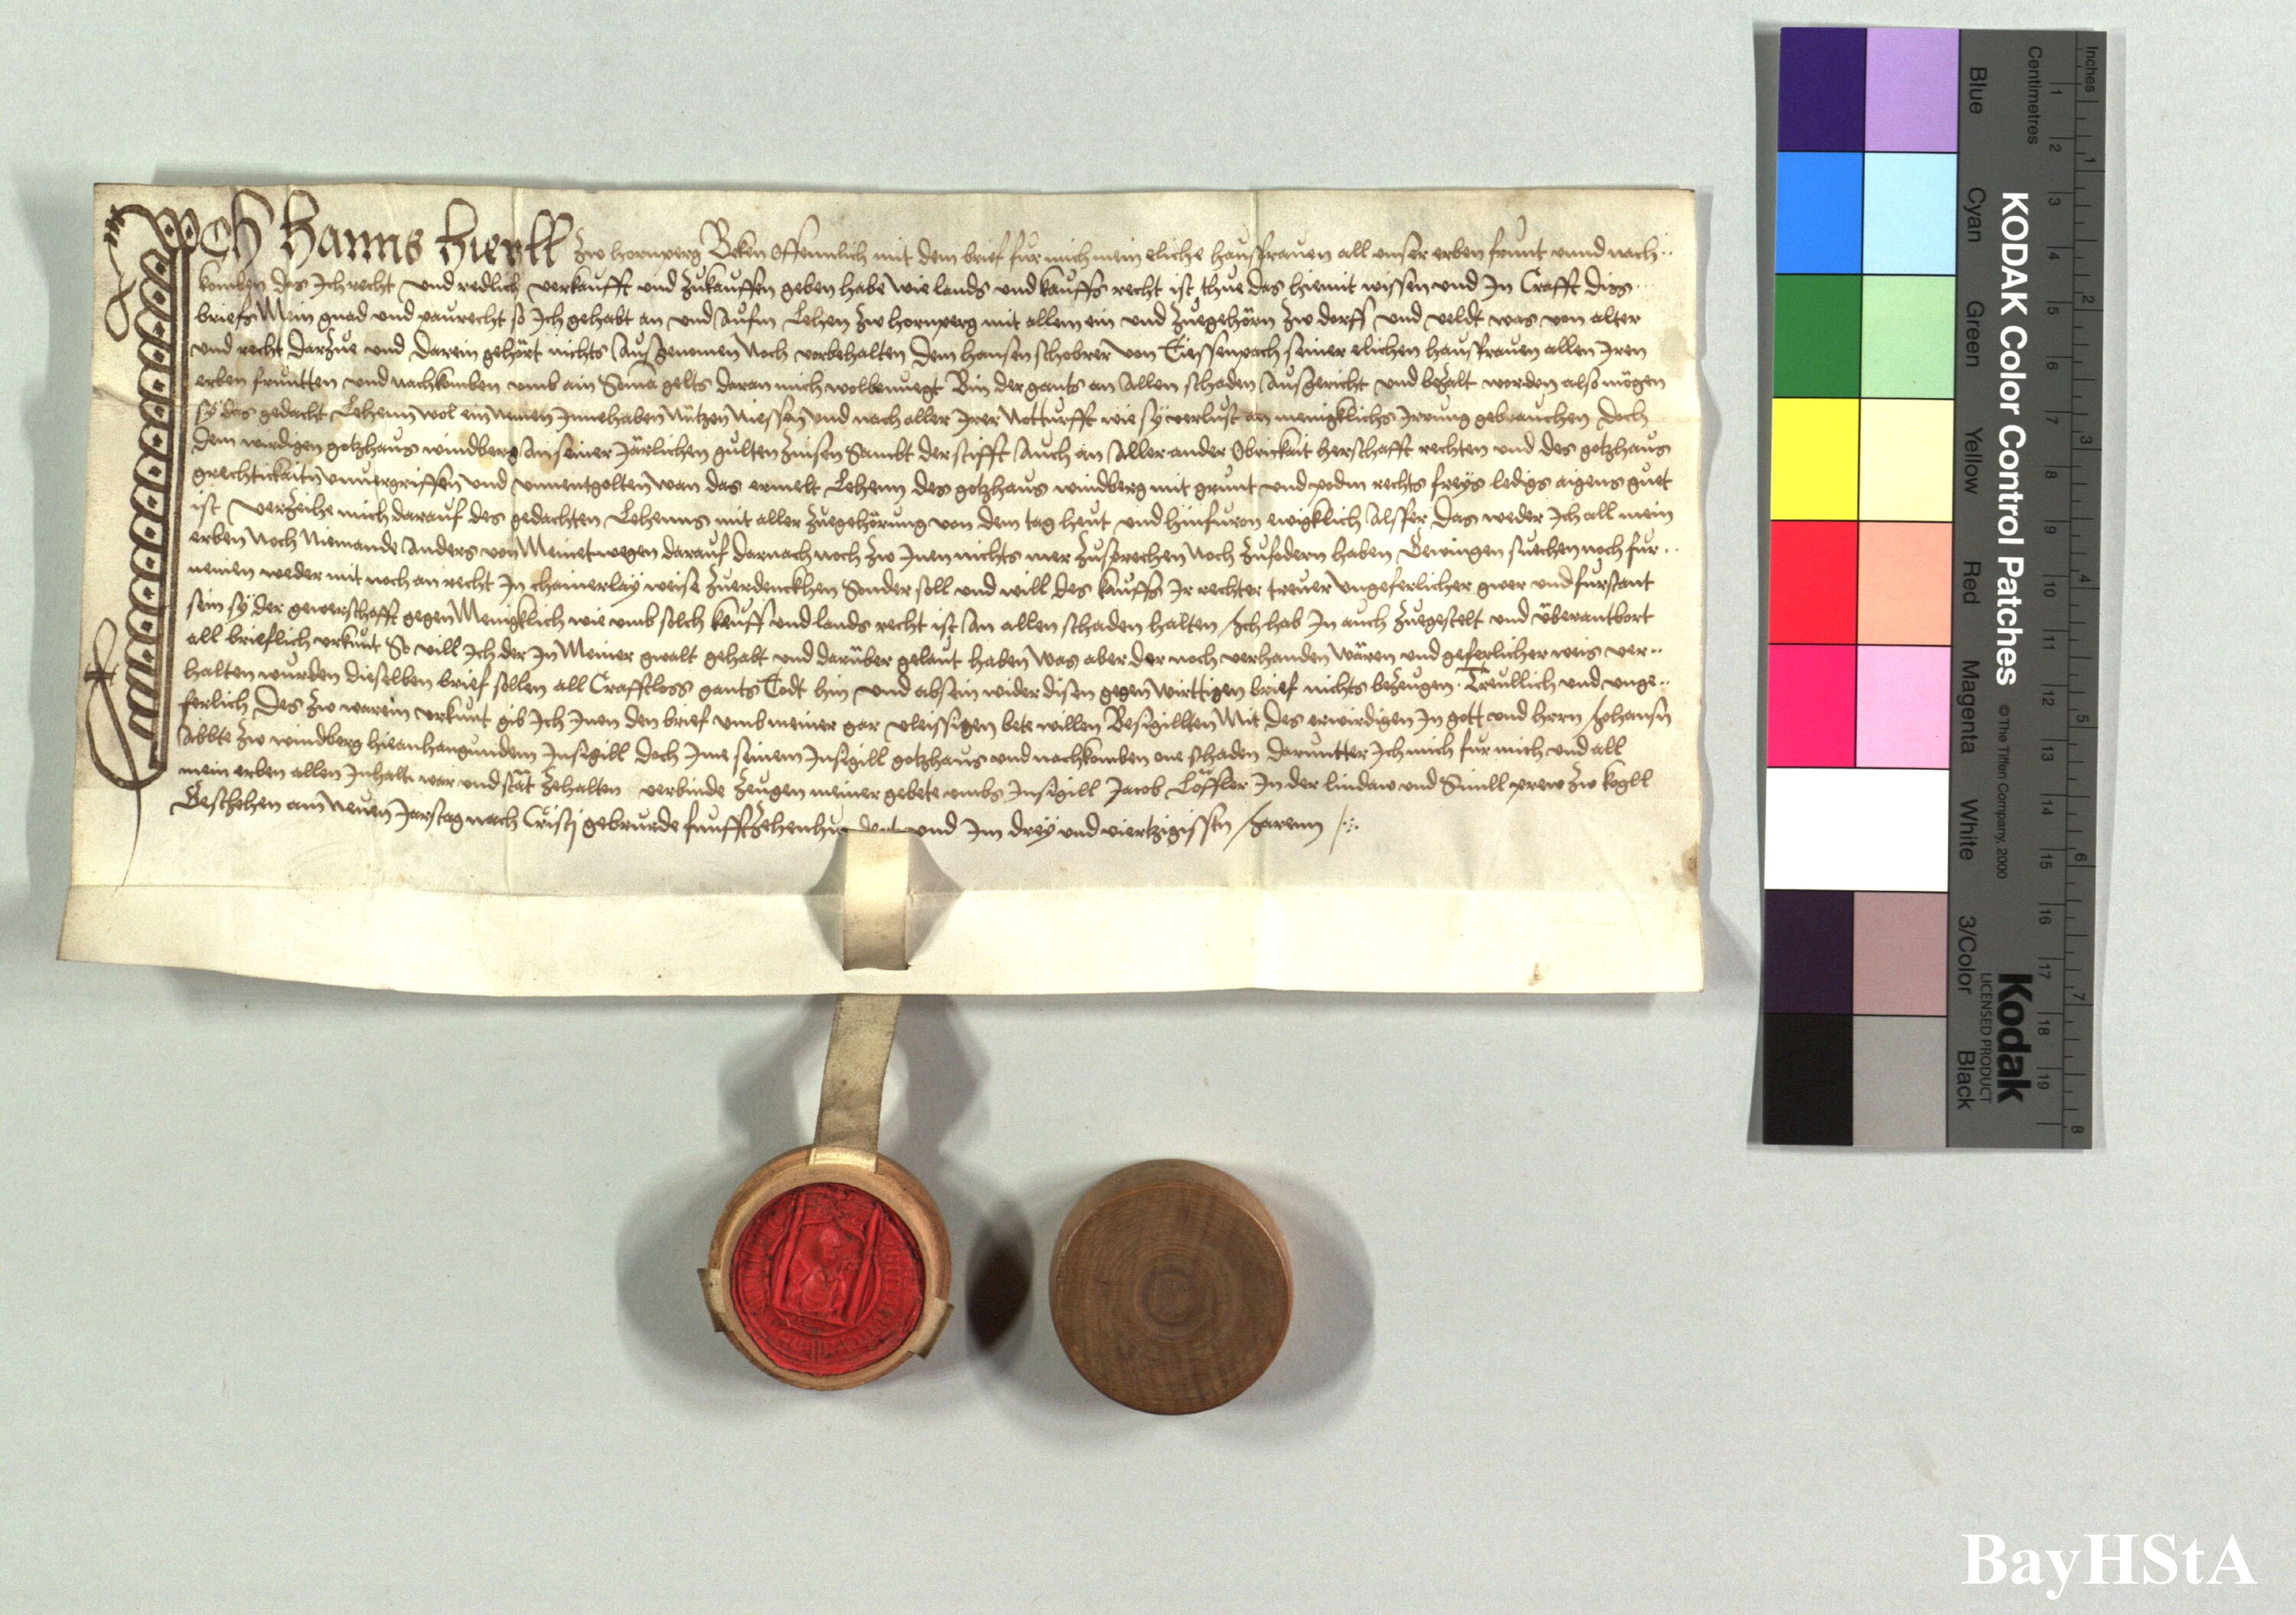 Ich Hanns hierll zw hornperg Beken offennlich mit dem brief fur mich mein eliche hausfrauen all unser erben frunt unnd nach
komben das Ich recht und redlich verkaufft und zukauffen geben habe wie lands und kauffs recht ist thue das hiemit wissen und In Crafft diss
briefs Mein gnad und paurecht so Ich gehabt an und Aufm Lehen zw hornperg mit allem ein und zuegehörn zw dorff und veldt was von alter
und recht darzue und darein gehört nichts Ausgenomen Noch vorbehalten Dem hansen schobrer von Tiessenpach seiner elichen hausfrauen allen Iren
erben fruntten und nachkomben umb ain Suma gelts daran mich wolbenuegt Bin der gants an Allen schaden Ausgericht und bezalt worden also mögen
sÿ das gedacht Lehenn wol ein nemen Innehaben Nützen Niessen und nach aller Irer Notturfft wie sÿ verlust an menigklichs Irrung gebrauchen Doch
dem wirdigen gotzhaus windberg An seiner Järlichen gulten Zinsen Sambt der stifft Auch an Aller ander Obrickait herschafft rechten und des gotzhaus
grechtickaitn unuergriffen und unnentgolten wan das ermelt Lehenn des gotzhaus windberg mit grunt und podm rechts freÿs ledigs aigens guet
ist verzeihe mich darauf des gedachten Lehenns mit aller zuegehörung von dem tag heut und hinfuron ewigklich Alsfer das weder Ich all mein
erben Noch Niemande Anders von Meinetwegen darauf darnach noch zw Inen nichts mer zusprechen Noch zufodern haben Gewingen suechen noch fur
nemen weder mit noch an recht In chainerlaÿ weise zuerdenckhen Sonder soll und will des kauffs Ir rechter treuer ungeferlicher gwer und furstant
sein sÿ der gewerschafft gegen Menigklich wie umb solch keuff und lands recht ist An allen schaden halten Ich hab In auch zuegestelt und überantbort
all brieflich urkunt So vill Ich der In Meiner gwalt gehabt und darüber gelaut haben Was aber der noch verhanden wären und geferlicher weis ver
halten wurden dieselben brief sollen all Crafftloss gants Todt hin und absein wider disen gegenwirttigen brief nichts bezeugen. Treullich und unge
ferlich Des zw warem urkunt gib Ich Inen den brief umb meiner gar vleissigen bete willen Besigillten Mit des erwirdigen In gott und hern Johansn
Abbte zw windberg hieanhangundem Insigill doch Ime seinem Insigill gotzhaus und nachkomben one schaden daruntter Ich mich fur mich und all
mein erben allen Inhalts war und stät zehalten verbinde zeugen meiner gebete umbs Insigill Jacob Löffler In der lindaw und Simll prew zw kogll
Geschehen am Neuen Jarstag nach Cristj geburde funffzehenhundert und Im dreÿ und viertzigisstn Jarenn
KODAK Color Control Patches
©The Tiffen Company, 2000
Kodak
LICENSED PRODUCT
Blue Cyan Green Yellow Red Magenta White 3/Color Black
Centimetres 1 2 3 4 5 6 7 8 9 10 11 12 13 14 15 16 17 18 19
Inches 1 2 3 4 5 6 7 8
BayHStA